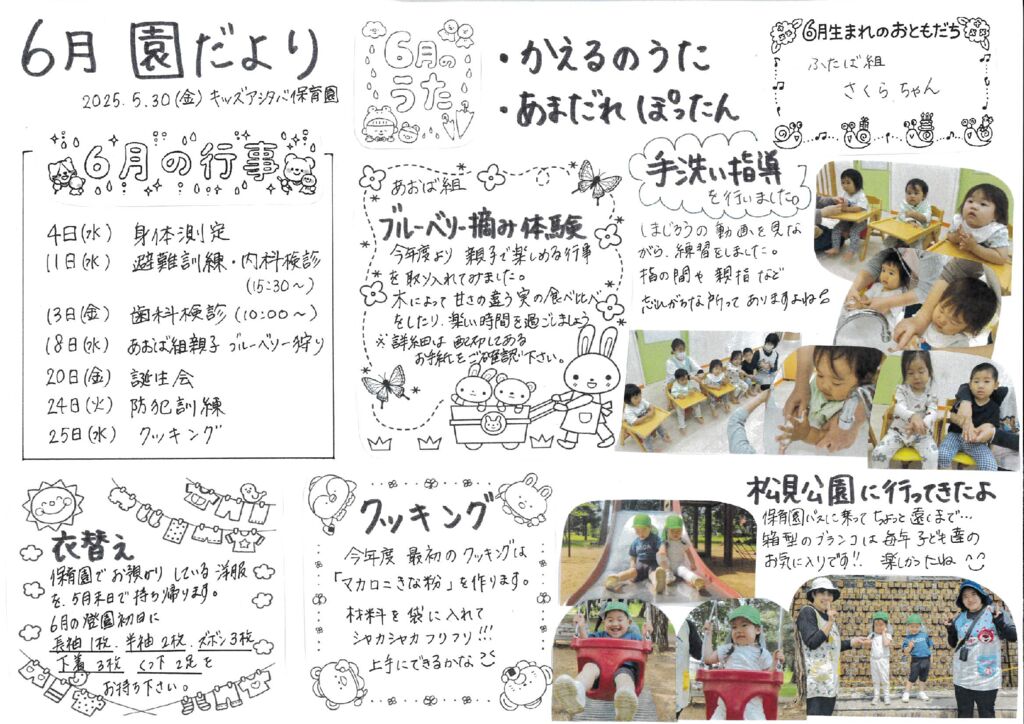 6月 園だより
2025.5.30(金) キッズアシタバ保育園
6月の行事
4日(水) 身体測定
11日(水) 避難訓練・内科検診
(15:30〜)
13日(金) 歯科検診(10:00〜)
18日(水) あおば組親子ブルーベリー狩り
20日(金) 誕生会
24日(火) 防犯訓練
25日(水) クッキング
6月の
うた
・かえるのうた
・あまだれ ぽったん
6月生まれのおともだち
ふたば組
さくらちゃん
あおば組
ブルーベリー摘み体験
今年度より 親子で楽しめる行事
を取り入れてみました。
木によって甘さの違う実の食べ比べ
をしたり、楽しい時間を過ごしましょう
※詳細は 配布してある
お手紙をご確認下さい。
手洗い指導
を行いました。
しまじろうの動画を見な
がら、練習をしました。
指の間や 親指など
忘れがちな所ってありますよね
衣替え
保育園でお預かりしている洋服
を、5月末日で持ち帰ります。
6月の登園初日に
長袖1枚、半袖2枚、ズボン3枚
下着3枚 くつ下2足を
お持ち下さい。
クッキング
今年度 最初のクッキングは
「マカロニきな粉」を作ります。
材料を袋に入れて
シャカシャカフリフリ!!!
上手にできるかな
松見公園に行ってきたよ
保育園バスに乗ってちょっと遠くまで…
箱型のブランコは毎年子ども達の
お気に入りです!! 楽しかったね